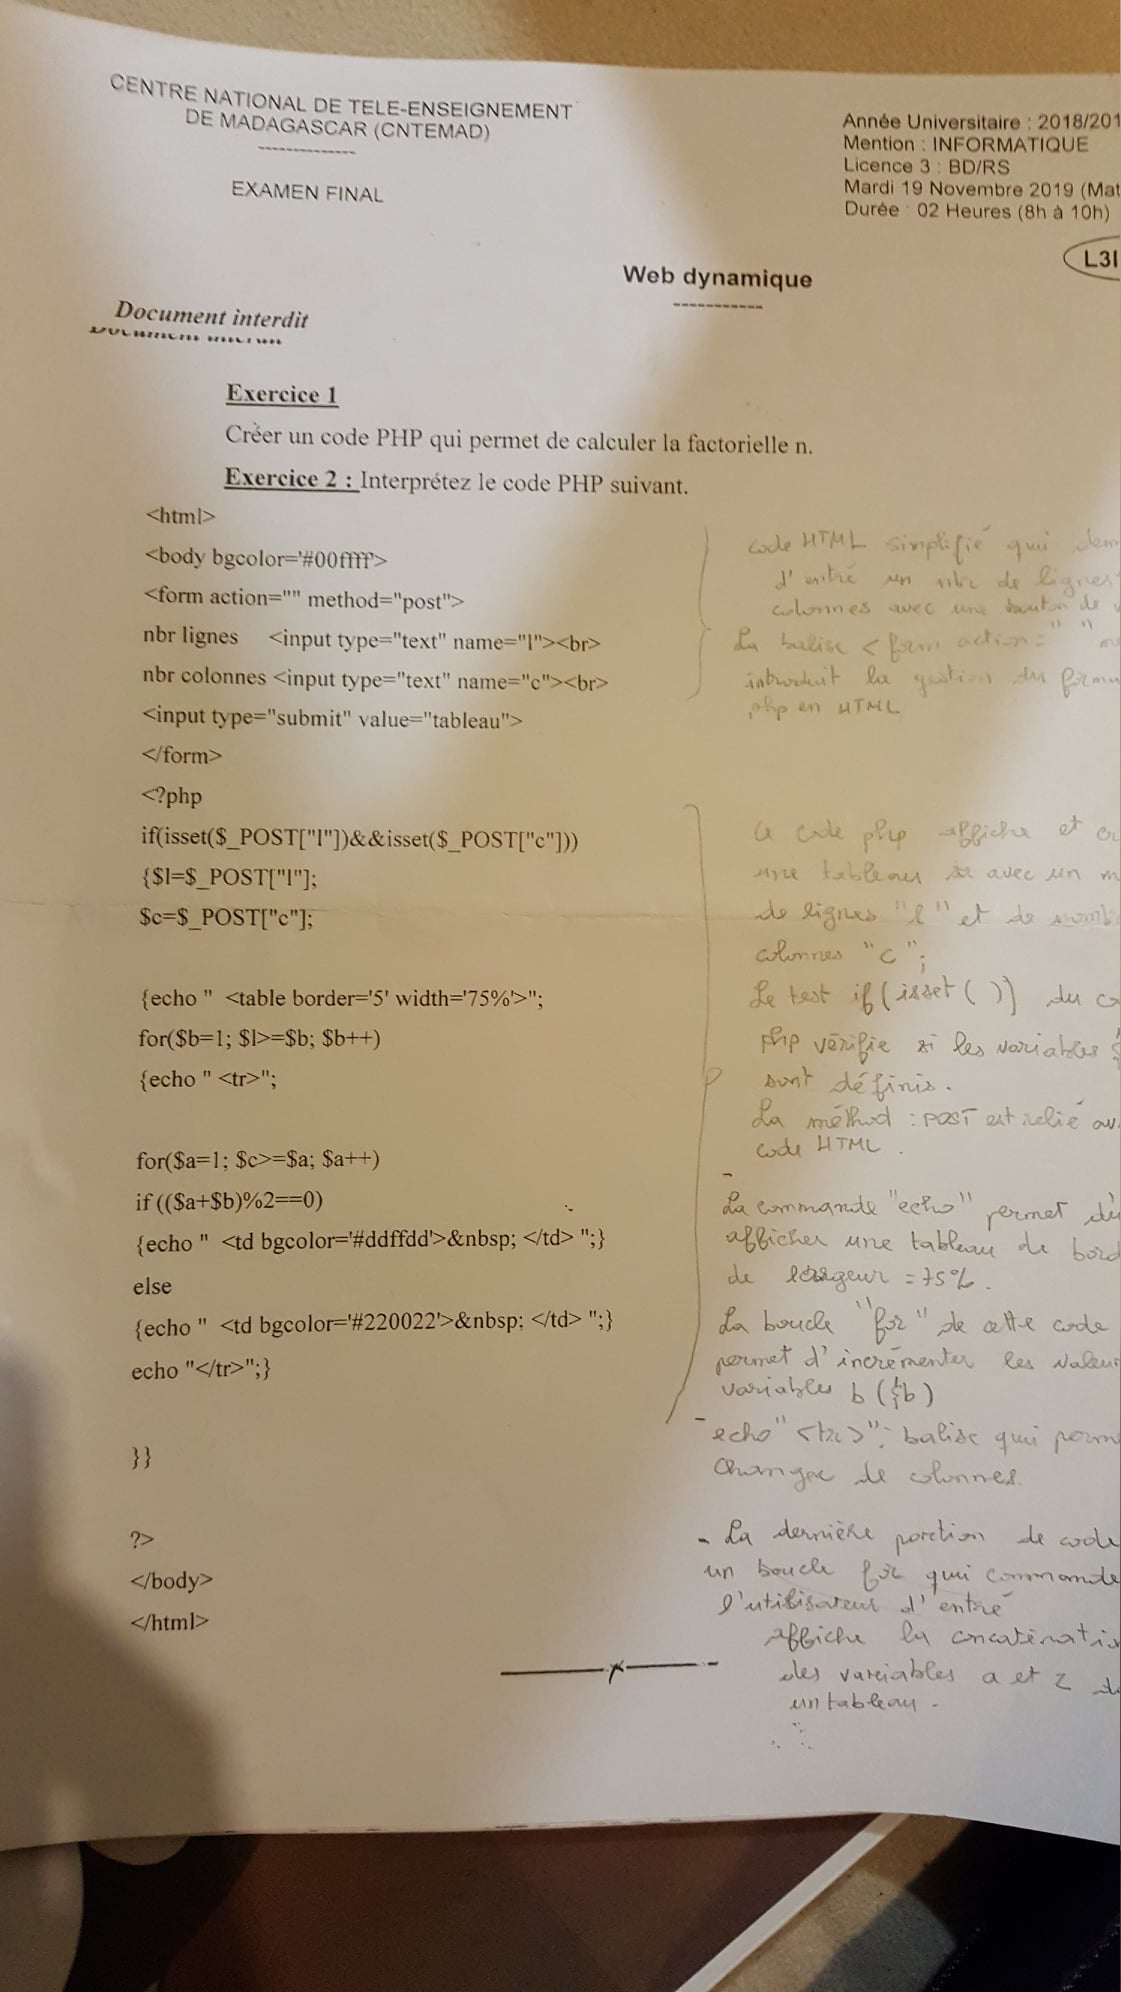 CENTRE NATIONAL DE TELE-ENSEIGNEMENT
DE MADAGASCAR (CNTEMAD)
-------------
EXAMEN FINAL
Année Universitaire : 2018/201
Mention : INFORMATIQUE
Licence 3 : BD/RS
Mardi 19 Novembre 2019 (Mat
Durée : 02 Heures (8h à 10h)
L3I
Web dynamique
-----------
Document interdit
Exercice 1
Créer un code PHP qui permet de calculer la factorielle n.
Exercice 2 : Interprétez le code PHP suivant.
<html>
<body bgcolor='#00ffff'>
<form action="" method="post">
nbr lignes <input type="text" name="l"><br>
nbr colonnes <input type="text" name="c"><br>
<input type="submit" value="tableau">
</form>
<?php
if(isset($_POST["l"])&&isset($_POST["c"]))
{$l=$_POST["l"];
$c=$_POST["c"];
{echo " <table border='5' width='75%'>";
for($b=1; $l>=$b; $b++)
{echo " <tr>";
for($a=1; $c>=$a; $a++)
if (($a+$b)%2==0)
{echo " <td bgcolor='#ddffdd'>&nbsp; </td> ";}
else
{echo " <td bgcolor='#220022'>&nbsp; </td> ";}
echo "</tr>";}
}}
?>
</body>
</html>
code HTML simplifié qui dem
d'entré un nbr de lignes
colonnes avec une bouton de
La balise <form action=" "
introduit la gestion du formu
php en HTML
Ce code php affiche et cr
une tableau avec un
de lignes "l" et de nomb
colonnes "c";
Le test if (isset ( )) du co
php vérifie si les variables $
sont définis.
La méthod : POST est relié av
code HTML .
-
La commande "echo" permet
afficher une tableau de bord
de largeur = 75%.
La boucle "for" de cette code
permet d'incrémenter les valeur
variables b ($b)
- echo" <tr>"; balise qui perm
changer de colonnes.
- La dernière portion de code
un boucle for qui commande
l'utilisateur d'entré
affiche la concaténatio
des variables a et z d
un tableau .